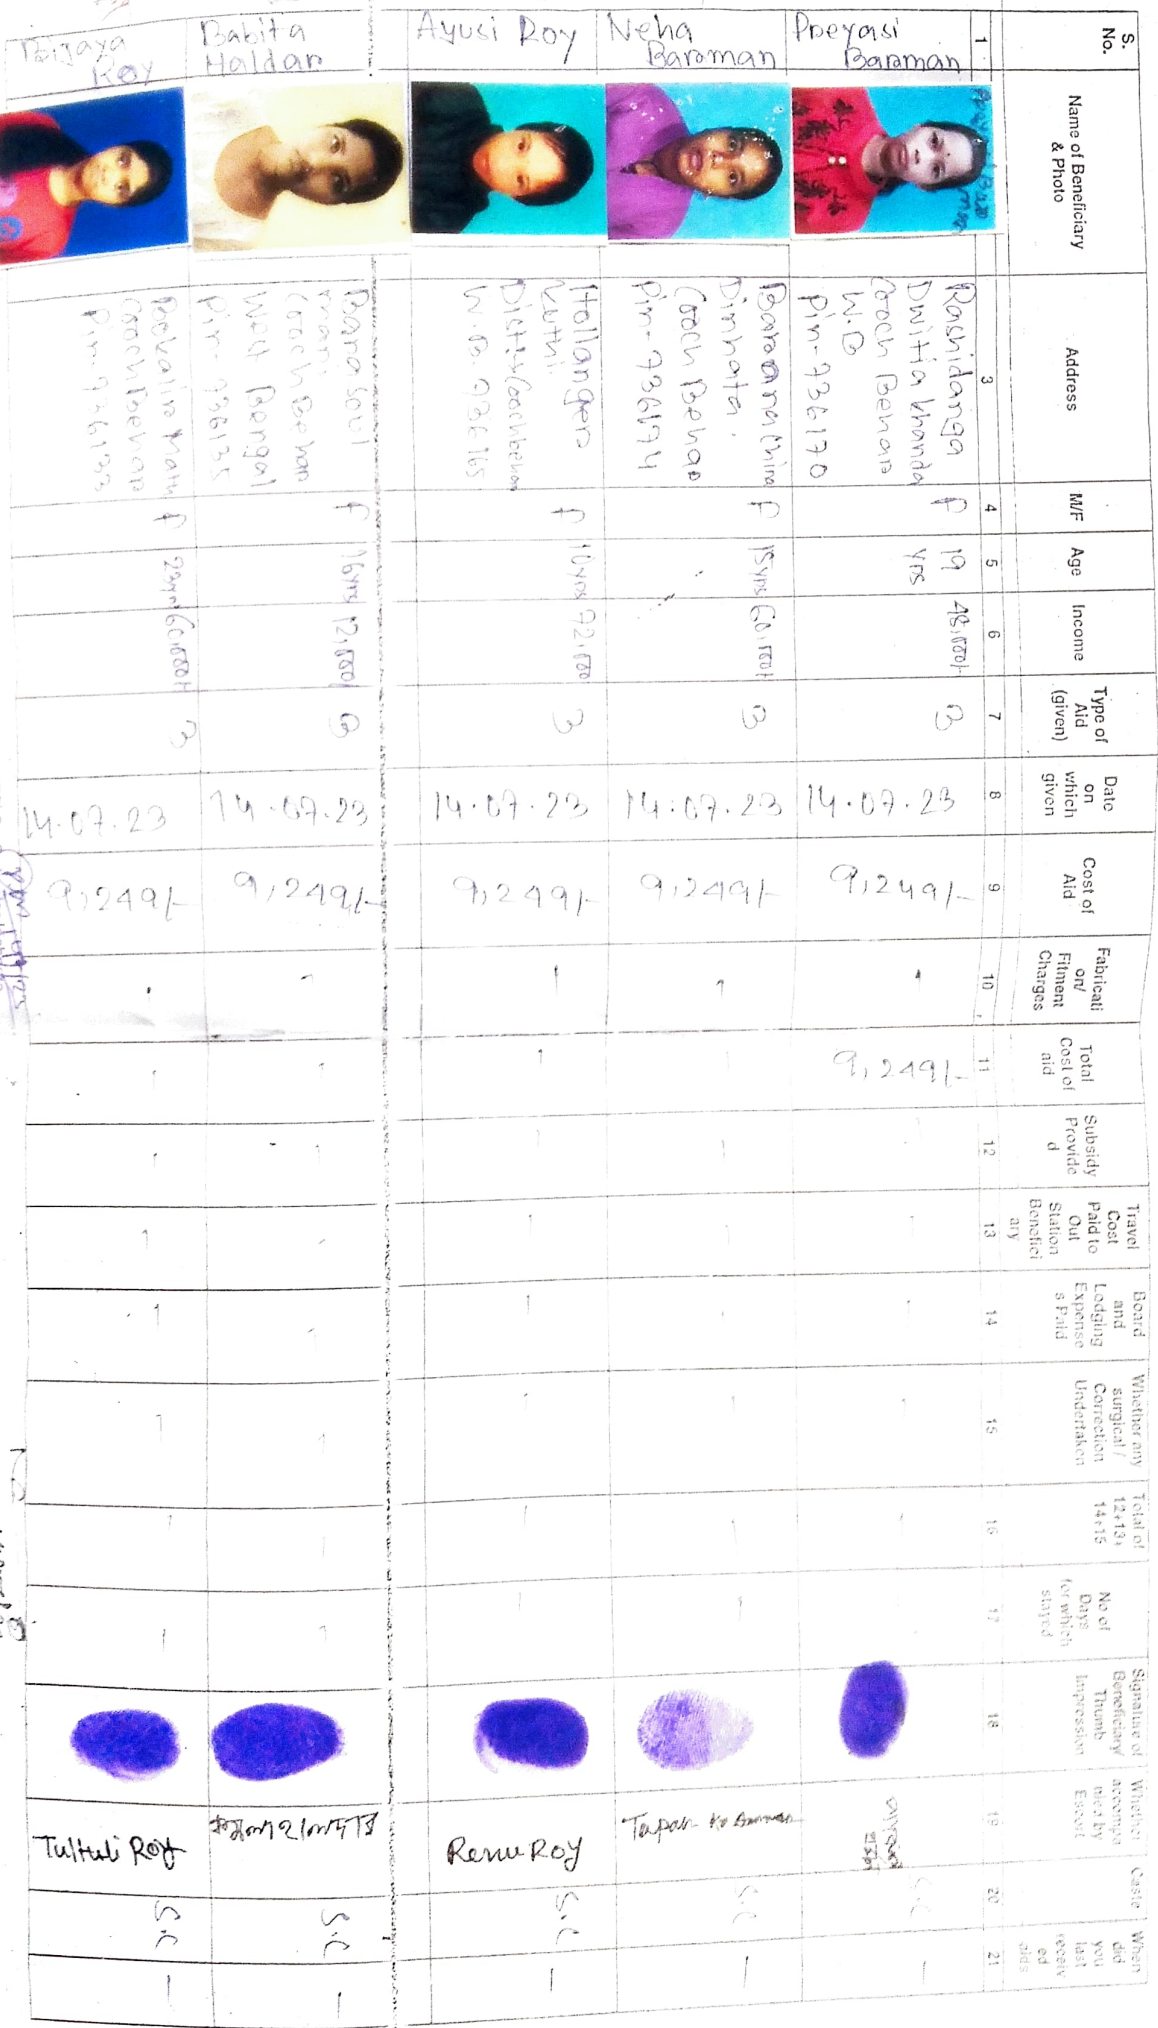 S. No.
Name of Beneficiary & Photo
Address
M/F
Age
Income
Type of Aid (given)
Date on which given
Cost of Aid
Fabricati on/ Fitment Charges
Total Cost of aid
Subsidy Provide d
Travel Cost Paid to Out Station Benefici ary
Board and Lodging Expense s Paid
Whether any surgical / Correction Undertaken
Total of 12+13+ 14+15
No of Days for which stayed
Signature of Beneficiary/ Thumb Impression
Whether accompa nied by Escort
Caste
When did you last receiv ed aids
1 3 4 5 6 7 8 9 10 11 12 13 14 15 16 17 18 19 20 21
Preyasi
Barman
Rashidanga
Dwitia Khanda
Cooch Behar
W.B
Pin-736170
F
19
yrs
48,000/-
3
14.07.23
9,249/-
9,249/-
S.C
Neha
Barman
Dinhata
Cooch Behar
Pin-736174
F
15yrs
60,000/-
3
14.07.23
9,249/-
Tapan
S.C
Ayusi Roy
Dist-Coochbehar
W.B. 736165
F
72,000
3
14.07.23
9,249/-
Renu Roy
S.C
Babita
Haldar
Cooch Behar
West Bengal
Pin 736135
F
16yrs
14.07.23
9,249/-
S.C
Bijaya
Roy
CoochBehar
Pin-736133
F
23yrs
60,000/-
3
14.07.23
9,249/-
Tultuli Roy
S.C